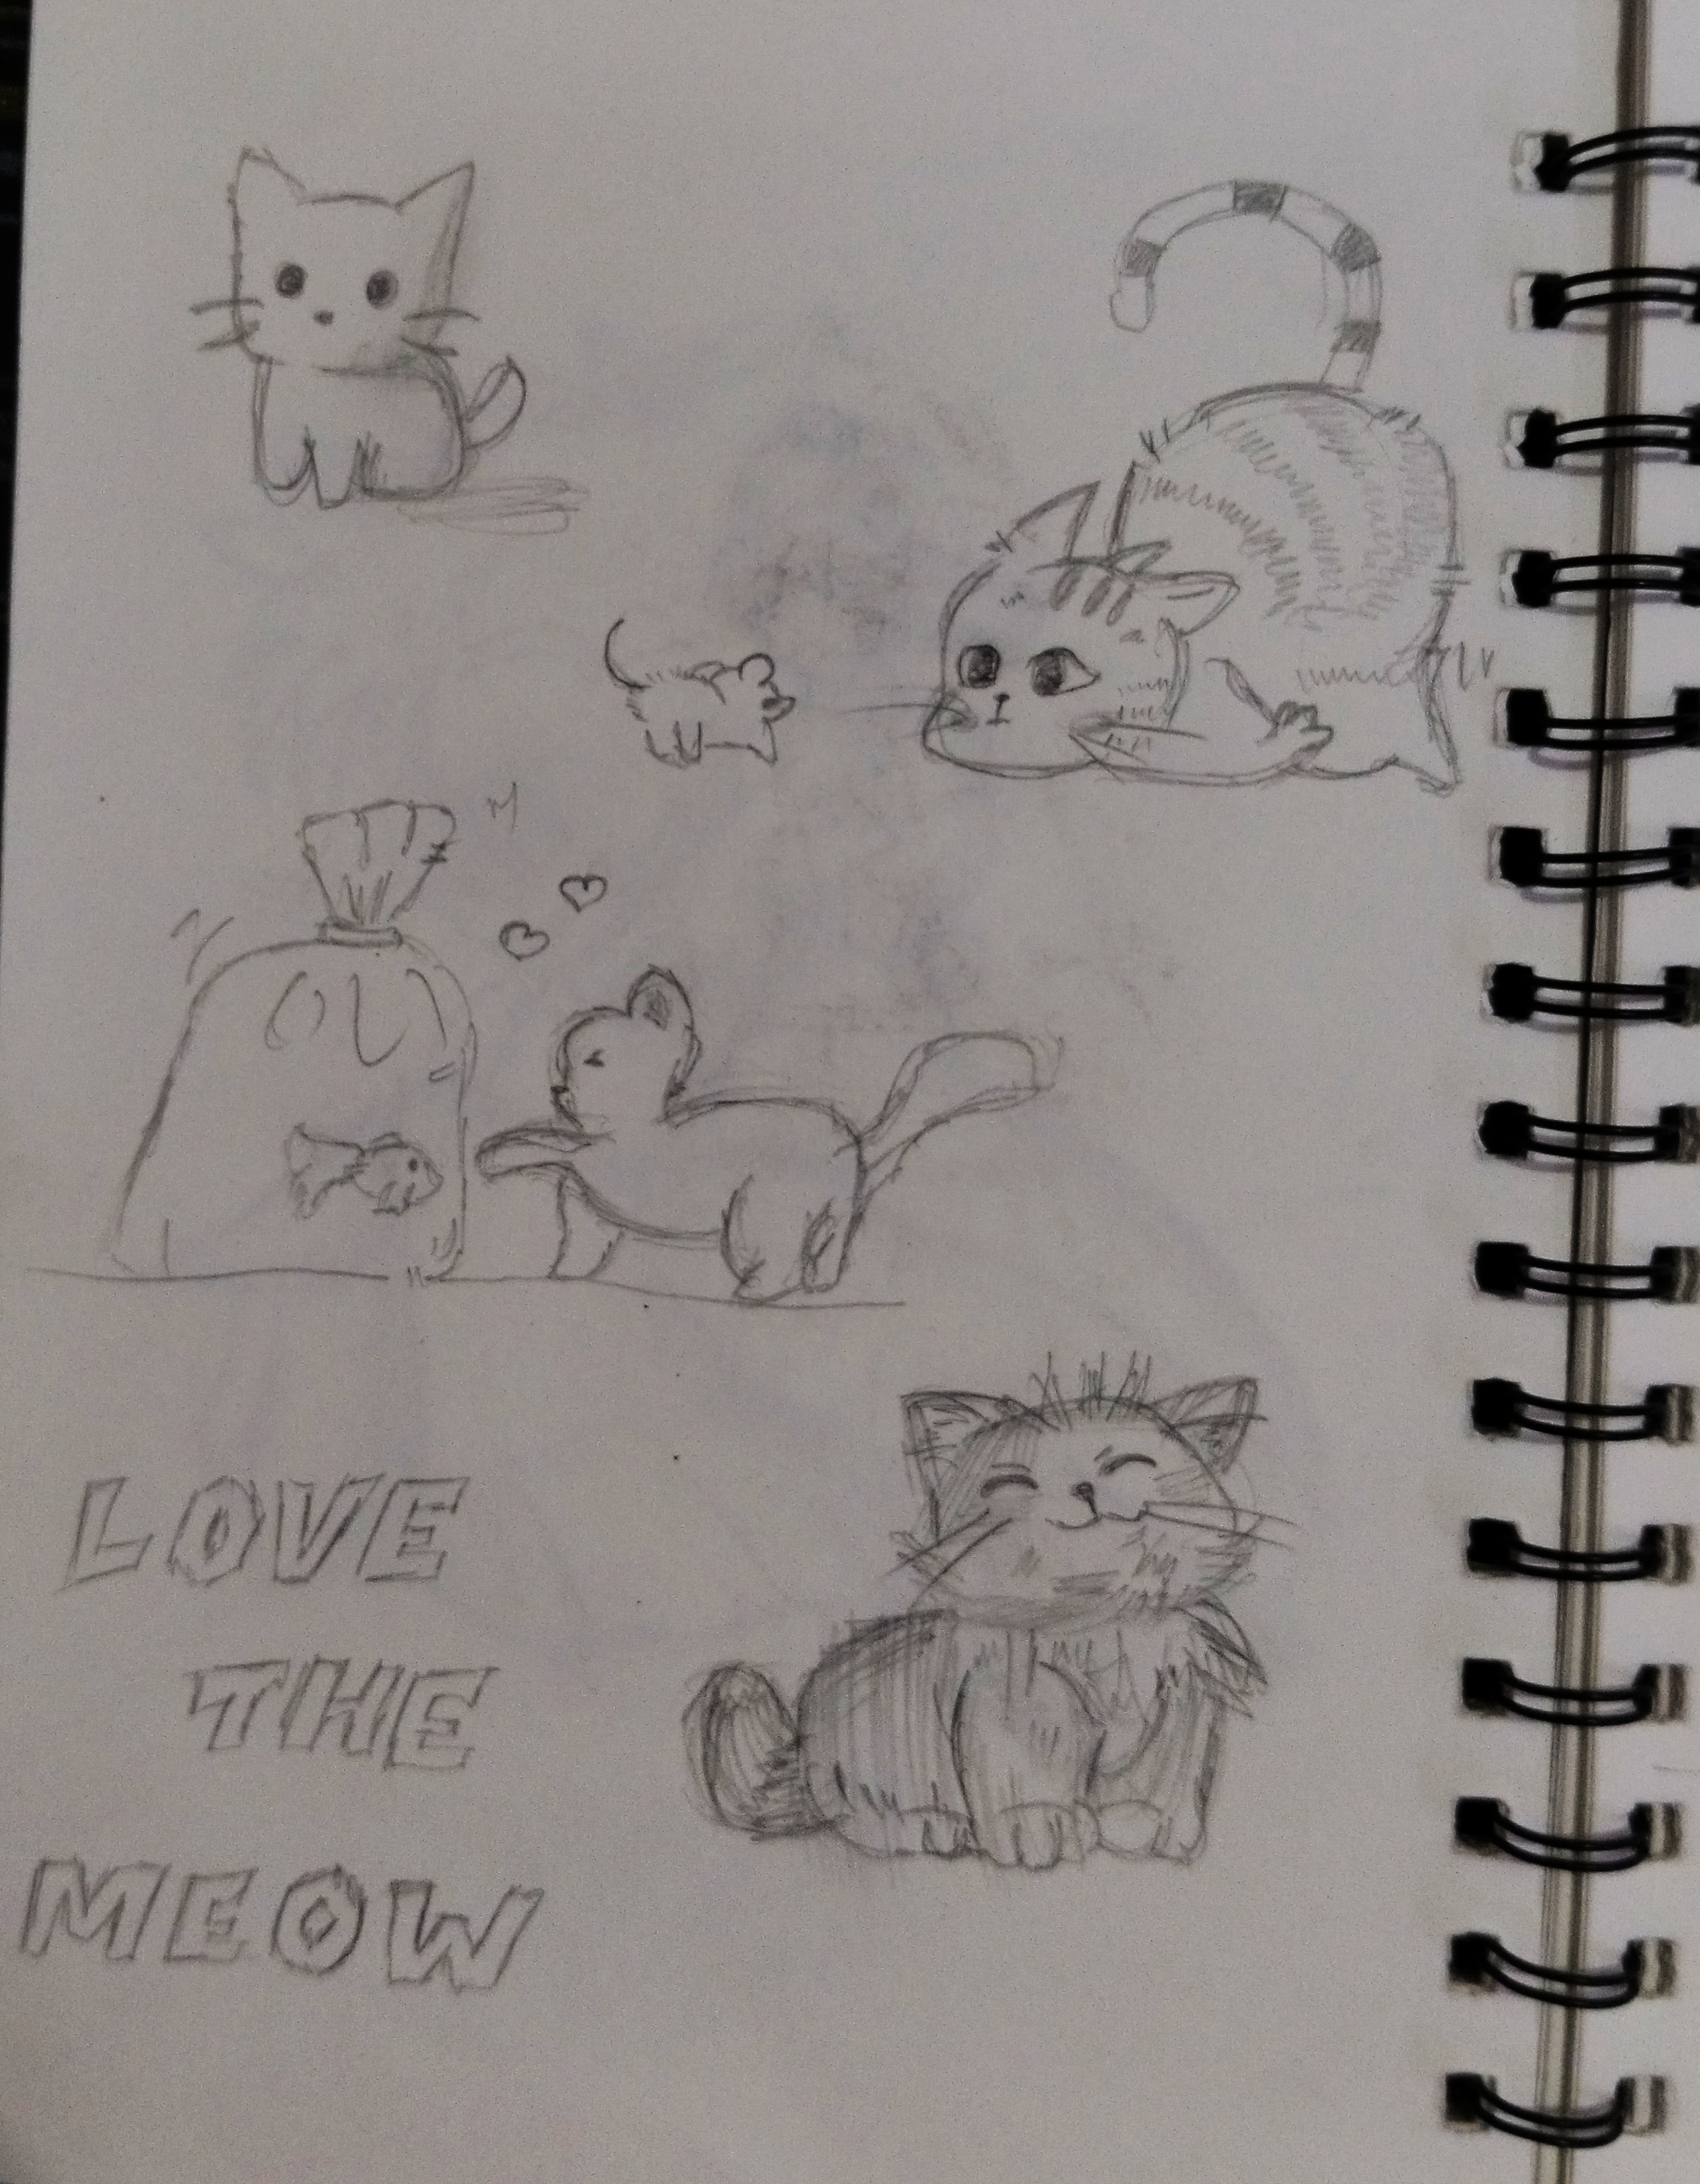 LOVE
THE
MEOW